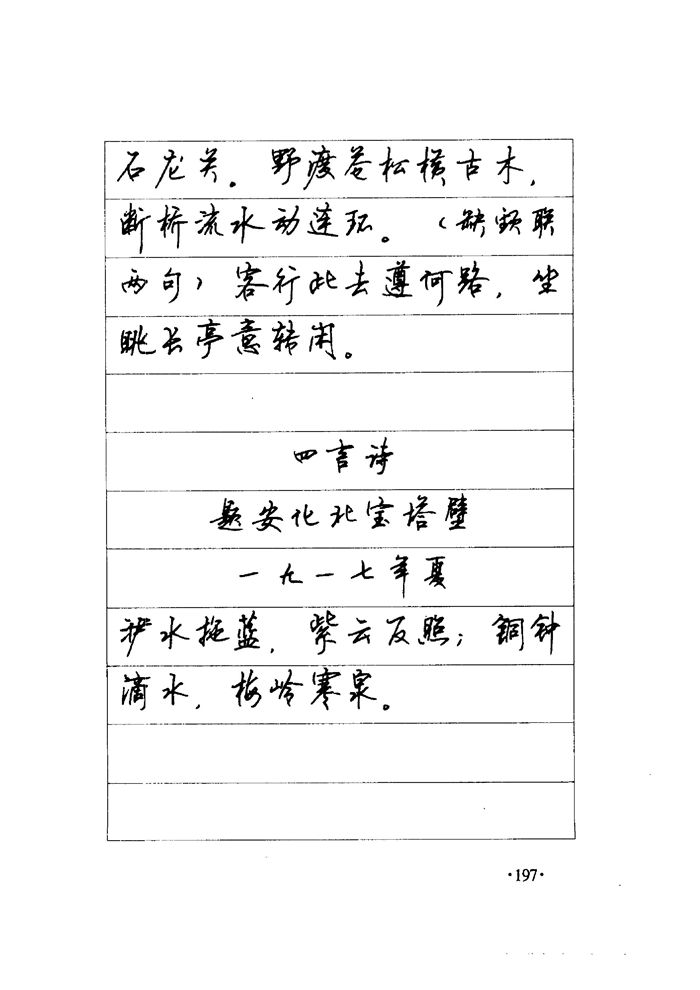 石龙关。野渡苍松横古木，
断桥流水动连环。（缺颈联
两句）客行此去遵何路，坐
眺长亭意转闲。
四言诗
题安化北宝塔壁
一九一七年夏
洢水拖蓝，紫云反照；铜钟
滴水，梅岭寒泉。
·197·